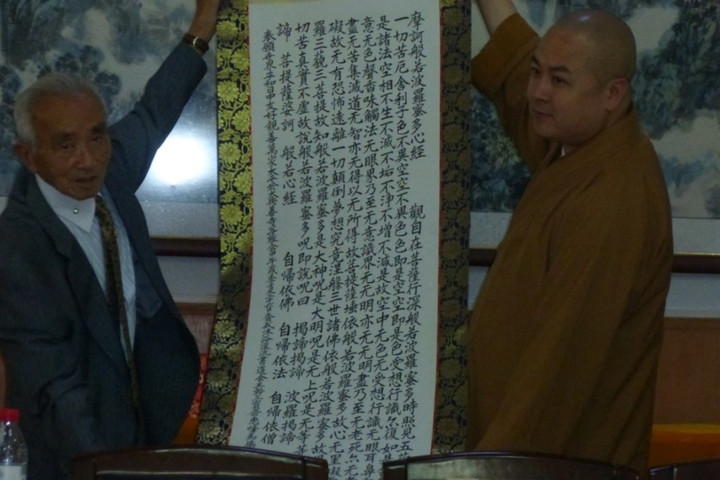 摩訶般若波羅蜜多心經 觀自在菩薩行深般若波羅蜜多時照見五
一切苦厄舍利子色不異空空不異色色即是空空即是色受想行識亦復如是
是諸法空相不生不滅不垢不淨不增不減是故空中无色无受想行識无眼耳鼻
意无色聲香味觸法无眼界乃至无意識界无无明亦无无明盡乃至无老死亦无
盡无苦集滅道无智亦无得以无所得故菩提薩埵依般若波羅蜜多故心无罣
礙故无有恐怖遠離一切顛倒夢想究竟涅槃三世諸佛依般若波羅蜜多故
羅三藐三菩提故知般若波羅蜜多是大神呪是大明呪是无上呪是无等
切苦真實不虛故說般若波羅蜜多呪即說呪曰 揭諦揭諦 波羅揭諦
諦 菩提薩婆訶 般若心經 自歸依佛 自歸依法 自歸依僧